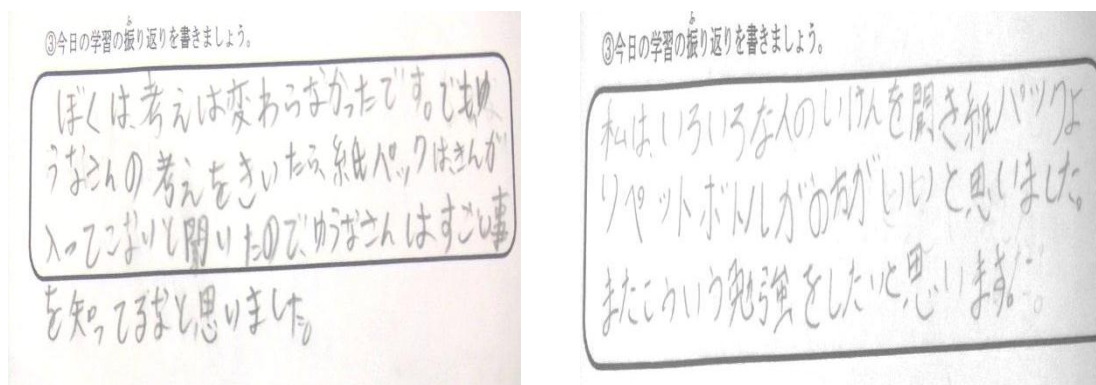 ③今日の学習の振り返りを書きましょう。
ぼくは、考えは変わらなかったです。でもゆ
うなさんの考えをきいたら、紙パックは、きんが
入ってこないと聞いたので、ゆうなさんはすごい事
を知ってるなと思いました。
③今日の学習の振り返りを書きましょう。
私は、いろいろな人のいけんを聞き紙パックよ
りペットボトルがの方がいいと思いました。
またこういう勉強をしたいと思います。